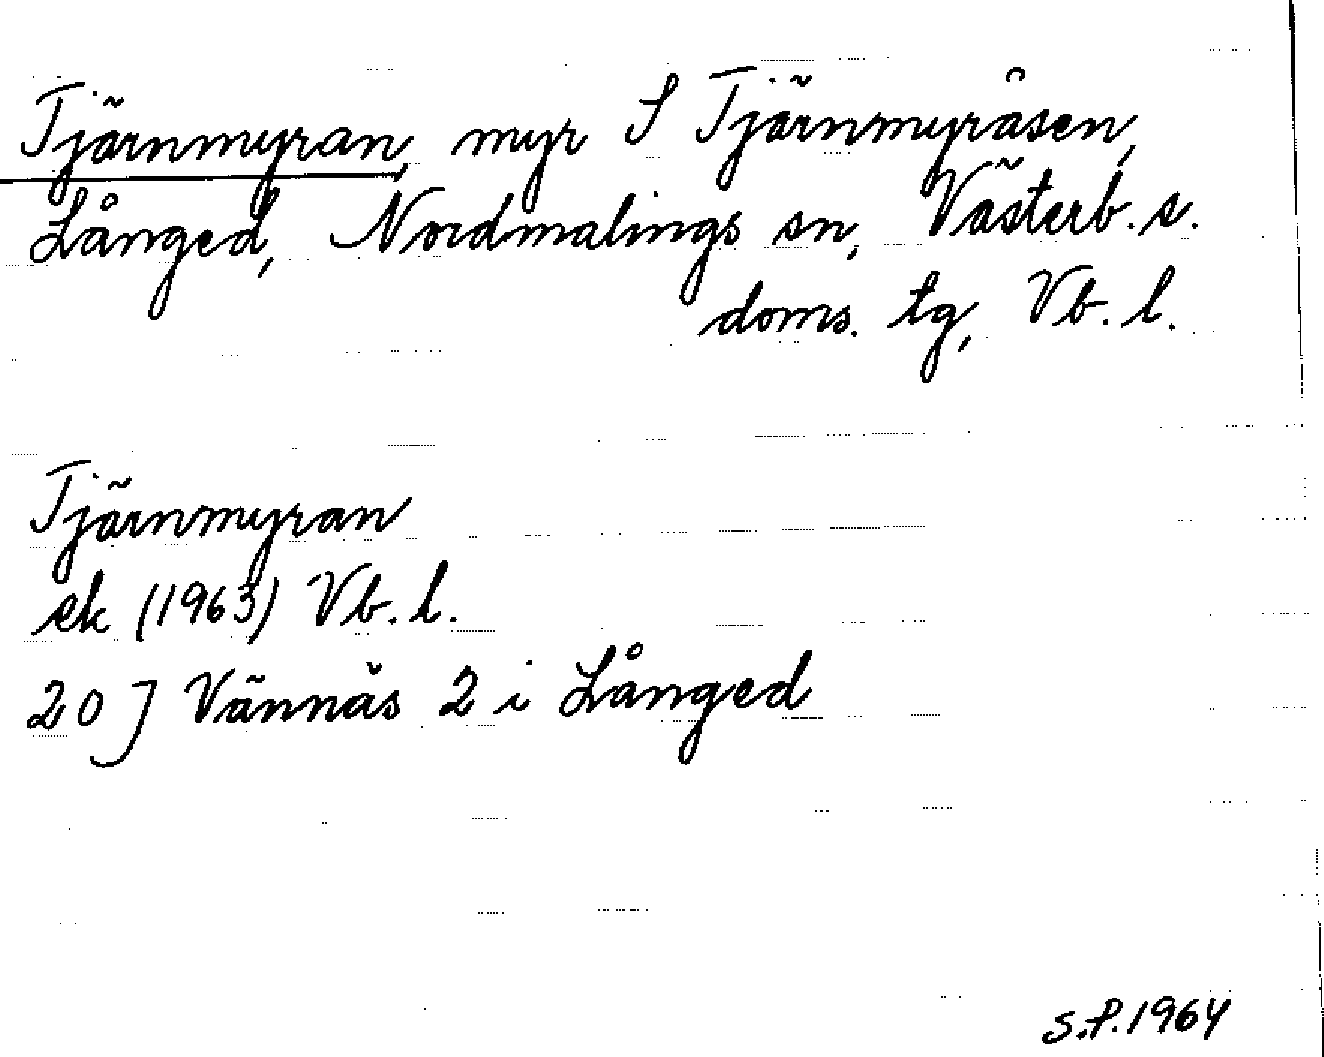 Tjärnmyran, myr S Tjärnmyråsen,
Långed, Nordmalings sn, Västerb. s.
doms. tg, Vb. l.
Tjärnmyran
ek (1963) Vb. l.
20 J Vännäs 2 i Långed
S.P. 1964